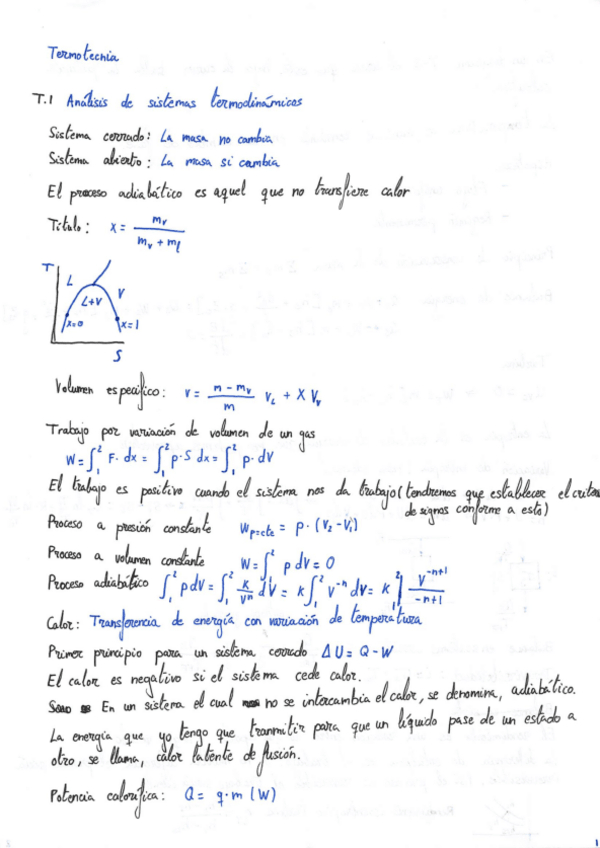 Termotecnia
T.1 Análisis de sistemas termodinámicos
Sistema cerrado: La masa no cambia
Sistema abierto: La masa si cambia
El proceso adiabático es aquel que no transfiere calor
Título: x = mv / (mv + ml)
T
L
L+V
V
x=0
x=1
S
Volumen específico: v = (m - mv)/m vL + X Vv
Trabajo por variación de volumen de un gas
W = ∫₁² F· dx = ∫₁² p·S dx = ∫₁² p·dV
El trabajo es positivo cuando el sistema nos da trabajo (tendremos que establecer el criterio
de signos conforme a esto)
Proceso a presión constante Wp=cte = p·(V2-V1)
Proceso a volumen constante W = ∫₁² p dV = 0
Proceso adiabático ∫₁² p dV = ∫₁² K/Vⁿ dV = K ∫₁² V⁻ⁿ dV = K ₁²| V⁻ⁿ⁺¹ / (-n+1)
Calor: Transferencia de energía con variación de temperatura
Primer principio para un sistema cerrado ΔU = Q-W
El calor es negativo si el sistema cede calor.
En un sistema el cual no se intercambia el calor, se denomina, adiabático.
La energía que yo tengo que tranmitir para que un líquido pase de un estado a
otro, se llama, calor latente de fusión.
Potencia calorífica: Q = q·m (W)
1